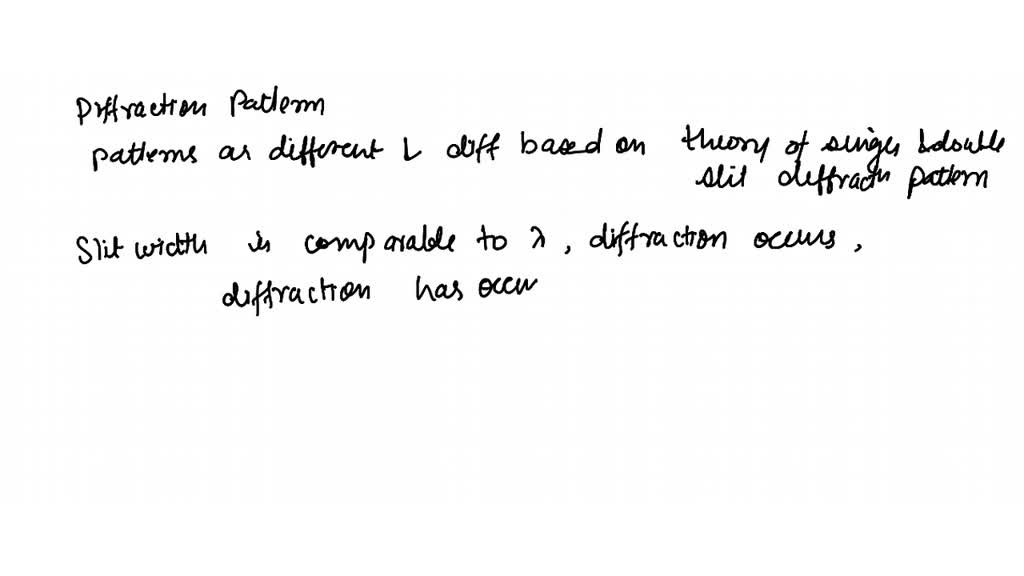 Diffraction Pattern
patterns as different L diff based on theory of single & double
slit diffractn pattern
Slit width is comparable to λ, diffraction occurs,
diffraction has occu